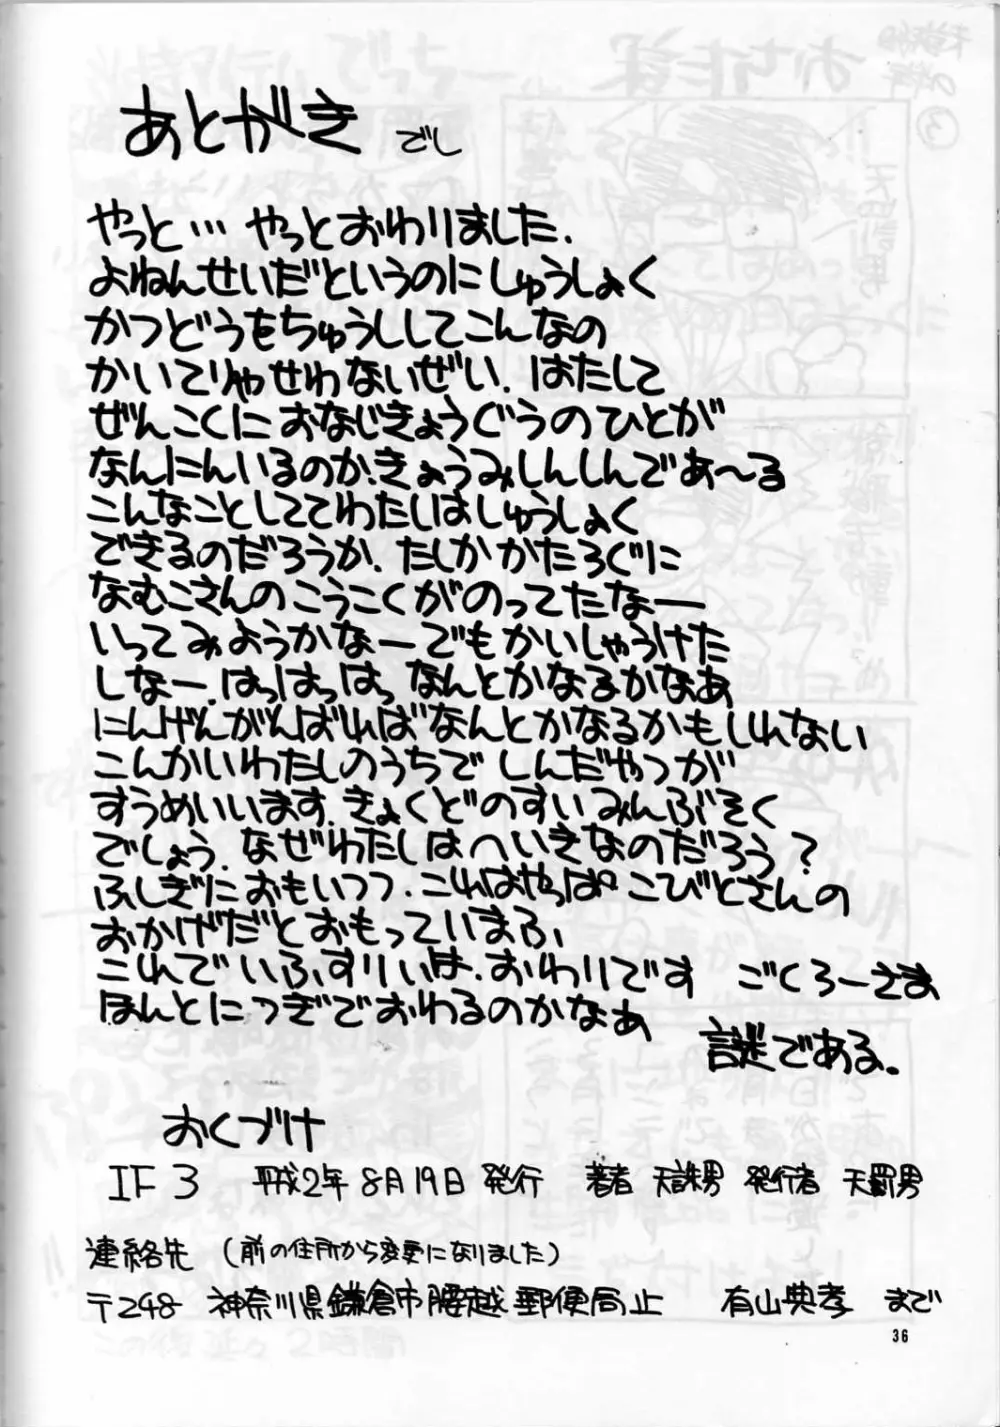 あとがき でし
やっと… やっとおわりました.
よねんせいだというのにしゅうしょく
かつどうをちゅうししてこんなの
かいてりゃせわないぜい. はたして
ぜんこくにおなじきょうぐうのひとが
なんにんいるのか.きょうみしんしんであ〜る
こんなことしててわたしはしゅうしょく
できるのだろうか. たしかかたろぐに
なむこさんのこうこくがのってたなー
いってみようかなー でもかいしゃうけた
しなー. はっはっはっ なんとかなるかなあ
にんげんがんばればなんとかなるかもしれない
こんかいわたしのうちでしんだやつが
すうめいいます. きょくどのすいみんぶそく
でしょう. なぜわたしはへいきなのだろう?
ふしぎにおもいつつ. これはやっぱりこびとさんの
おかげだとおもっていまふ
これでいふすりぃは. おわりです ごくろーさま
ほんとにつぎでおわるのかなぁ
謎である.
おくづけ
IF3 平成2年8月19日 発行 著者 天誅男 発行者 天罰男
連絡先 (前の住所から変更になりました)
〒248 神奈川県鎌倉市腰越郵便局止 有山典孝 まで
36